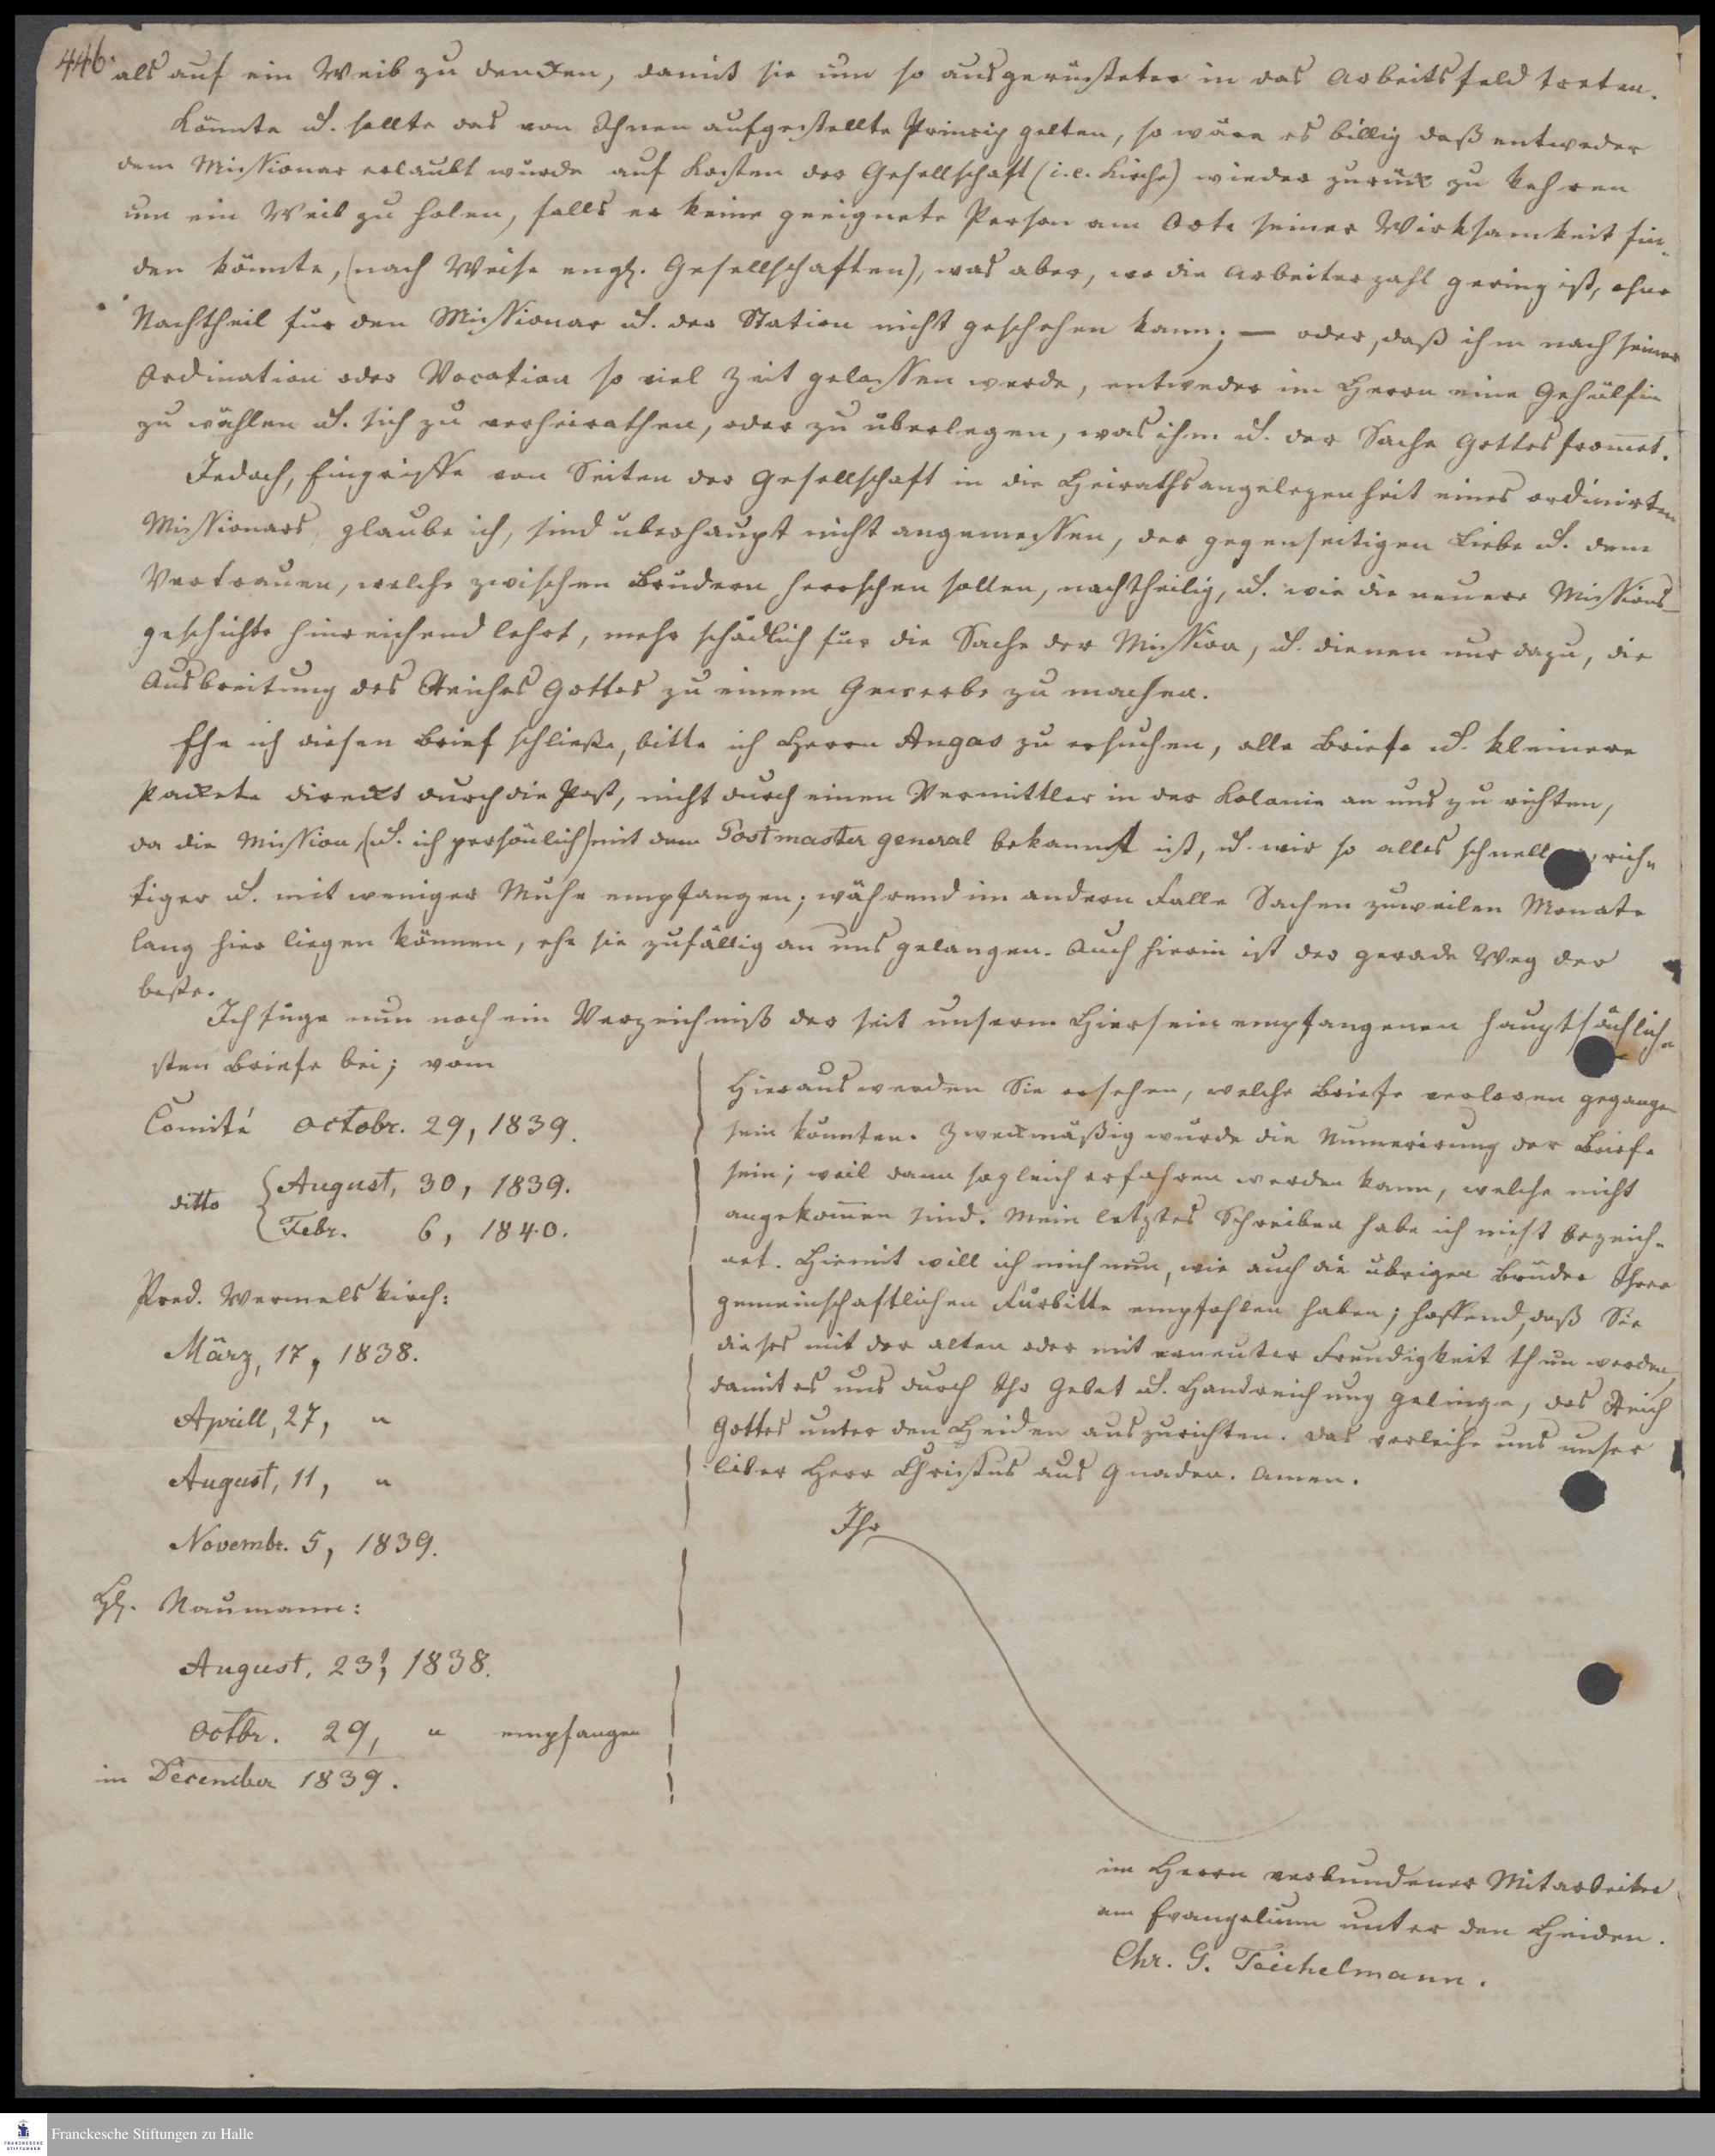 446.
als auf ein Weib zu denken, damit sie um so ausgerüsteter in das Arbeitsfeld treten.
Könnte u. sollte das von Ihnen aufgestellte Princip gelten, so wäre es billig daß entweder
dem Missionar erlaubt wurde auf Kosten der Gesellschaft (i.e. Kirche) wieder zurück zu kehren
um ein Weib zu holen, falls er keine geeignete Person am Orte seiner Wirksamkeit fin-
den könnte, (nach Weise engl. Gesellschaften), was aber, wo die Arbeiterzahl gering ist, ohne
Nachtheil fur den Missionar u. der Station nicht geschehen kann; — oder, daß ihm nach seiner
Ordination oder Vocation so viel Zeit gelassen werde, entweder im Herrn eine Gehülfin
zu wählen u. sich zu verheirathen, oder zu uberlegen, was ihm u. der Sache Gottes from̄et.
Jedoch, Eingriffe von Seiten der Gesellschaft in die Heirathsangelegenheit eines ordinirten
Missionars, glaube ich, sind uberhaupt nicht angemessen, der gegenseitigen Liebe u. dem
Vertrauen, welche zwischen Brudern herrschen sollen, nachtheilig, u. wie die neuere Missions-
geschichte hinreichend lehrt, mehr schädlich fur die Sache der Mission, u. dienen nur dazu, die
Ausbreitung des Reiches Gottes zu einem Gewerbe zu machen.
Ehe ich diesen Brief schließe, bitte ich Herrn Angas zu ersuchen, alle Briefe u. kleinere
Packete direckt durch die Post, nicht durch einen Vermittler in der Kolonie an uns zu richten,
da die Mission, (u. ich persönlich) mit dem Postmaster general bekannt ist, u. wir so alles schneller, rich-
tiger u. mit weniger Muhe empfangen; während im andern Falle Sachen zuweilen Monate
lang hier liegen können, ehe sie zufällig an uns gelangen. Auch hierin ist der gerade Weg der
beste.
Ich fuge nun noch ein Verzeichniß der seit unserm Hiersein empfangenen hauptsächlich-
sten Briefe bei; vom
Comité octobr. 29, 1839.
ditto { August, 30, 1839.
Febr. 6, 1840.
Pred. Wermelskirch:
März, 17, 1838.
Aprill, 27, "
August, 11, "
Novembr. 5, 1839.
H. Naumann:
August, 23, 1838.
Octbr. 29, " empfangen
im December 1839.
Hieraus werden Sie ersehen, welche Briefe verloren gegangen
sein könnten. Zweckmäßig wurde die Numerirung der Briefe
sein; weil dann sogleich erfahren werden kann, welche nicht
angekom̄en sind. Mein letztes Schreiben habe ich nicht bezeich-
net. Hiermit will ich mich nun, wie auch die ubrigen Brüder Ihrer
gemeinschaftlichen Fürbitte empfohlen haben; hoffend, daß Sie
dieses mit der alten oder mit erneuter Freudigkeit thun werden,
damit es uns durch Ihr Gebet u. Handreichung gelinge, das Reich
Gottes unter den Heiden auszurichten. Das verleihe uns unser
lieber Herr Christus aus Gnaden. Amen.
Ihr
im Herrn verbundener Mitarbeiter
am Evangelium unter den Heiden.
Chr. G. Teichelmann.
FRANCKESCHE STIFTUNGEN
Franckesche Stiftungen zu Halle